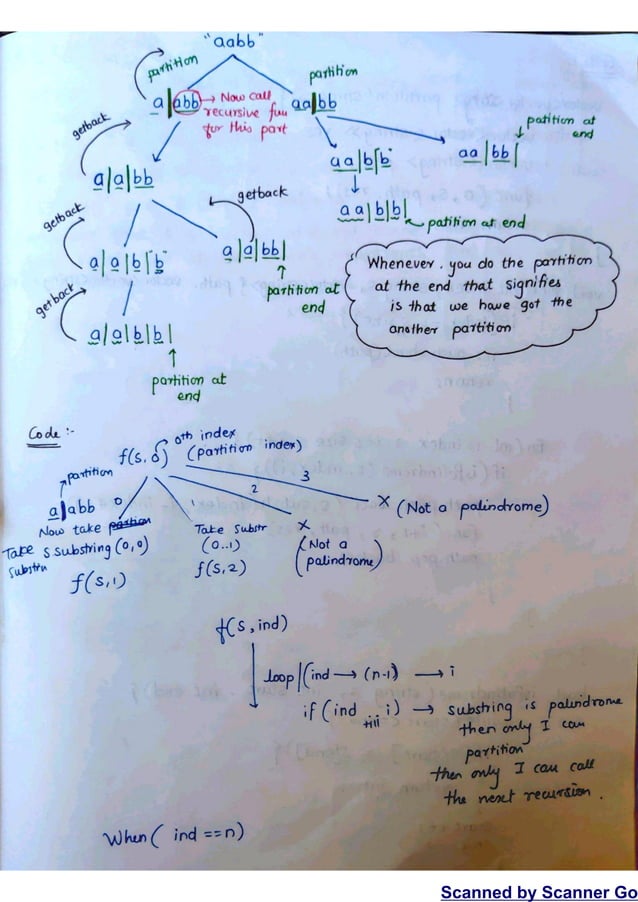 "aabb"
partition
partition
a|abb → Now call
recursive fun
for this part
aa|bb
patition at
end
getback
a|a|bb
aa|b|b
aa|bb|
getback
getback
aa|b|b|
patition at end
a|a|b|b
a|a|bb|
partition at
end
Whenever. you do the partition
at the end that signifies
is that we have got the
another partition
getback
a|a|b|b|
partition at
end
Code :-
0th index
f(s, 0) (partition index)
partition
a|abb
0
1
2
3
X (Not a palindrome)
Now take
Take s substring (0,0)
substrn
f(s,1)
Take Substr
(0..1)
f(s,2)
X
(Not a
palindrome)
f(s, ind)
loop (ind → (n-1) → i
if (ind till i) → substring is palindrome
then only I can
partition
then only I can call
the next recursion.
When ( ind ==n)
Scanned by Scanner Go